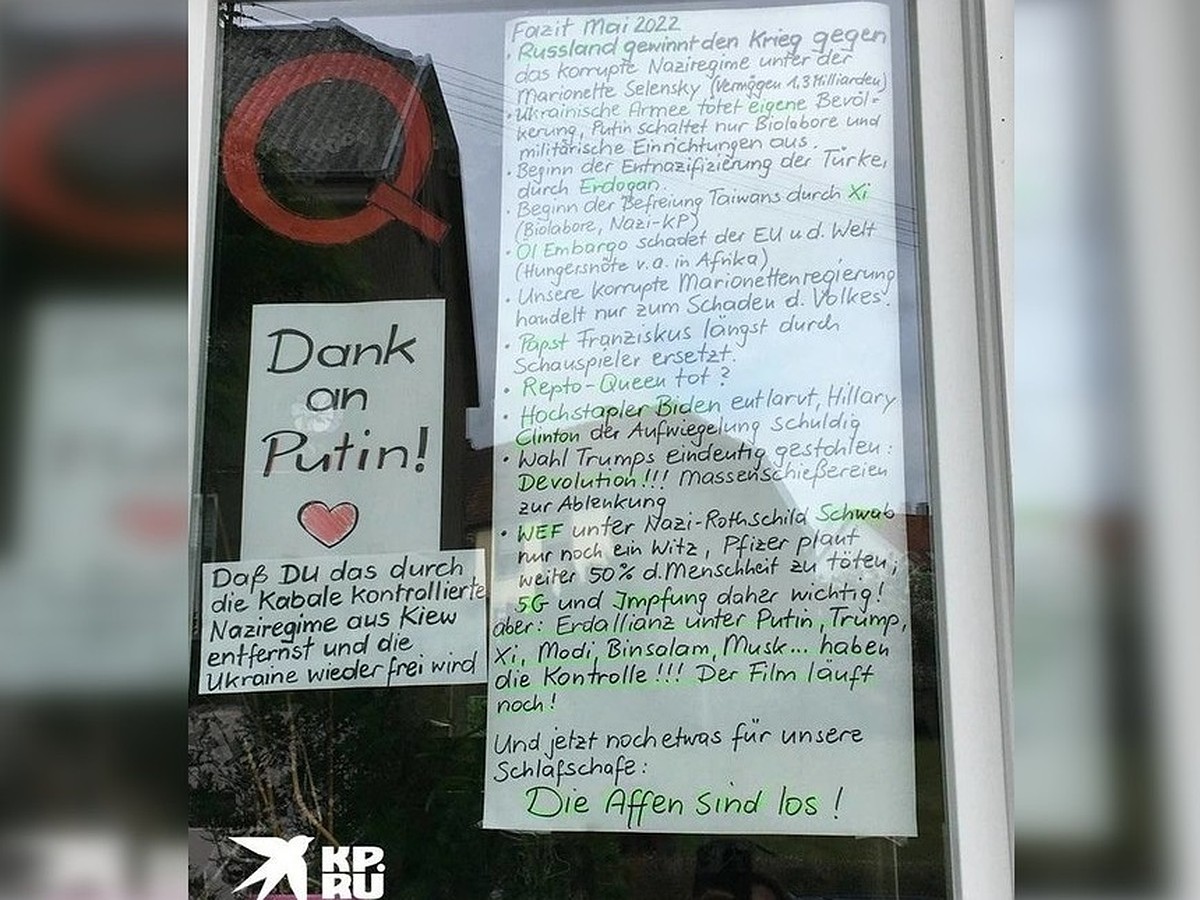 Q
Dank
an
Putin!
Daß Du das durch
die Kabale kontrollierte
Naziregime aus Kiew
entfernst und die
Ukraine wieder frei wird
Fazit Mai 2022
• Russland gewinnt den Krieg gegen
das korrupte Naziregime unter der
Marionette Selensky (Vermögen 1,3 Milliarden)
• Ukrainische Armee tötet eigene Bevöl-
kerung, Putin schaltet nur Biolabore und
militärische Einrichtungen aus.
• Beginn der Entnazifizierung der Türkei
durch Erdogan.
• Beginn der Befreiung Taiwans durch Xi
(Biolabore, Nazi-KP)
• Öl Embargo schadet der EU u.d. Welt
(Hungersnöte v.a. in Afrika)
• Unsere korrupte Marionettenregierung
handelt nur zum Schaden d. Volkes.
• Papst Franziskus längst durch
Schauspieler ersetzt.
• Repto-Queen tot?
• Hochstapler Biden entlarvt, Hillary
Clinton der Aufwiegelung schuldig
• Wahl Trumps eindeutig gestohlen:
Devolution!!! Massenschießereien
zur Ablenkung
• WEF unter Nazi-Rothschild Schwab
nur noch ein Witz, Pfizer plant
weiter 50% d. Menschheit zu töten;
5G und Impfung daher wichtig!
aber: Erdallianz unter Putin, Trump,
Xi, Modi, Binsalam, Musk... haben
die Kontrolle!!! Der Film läuft
noch!
Und jetzt noch etwas für unsere
Schlafschafe:
Die Affen sind los!
KP.
RU